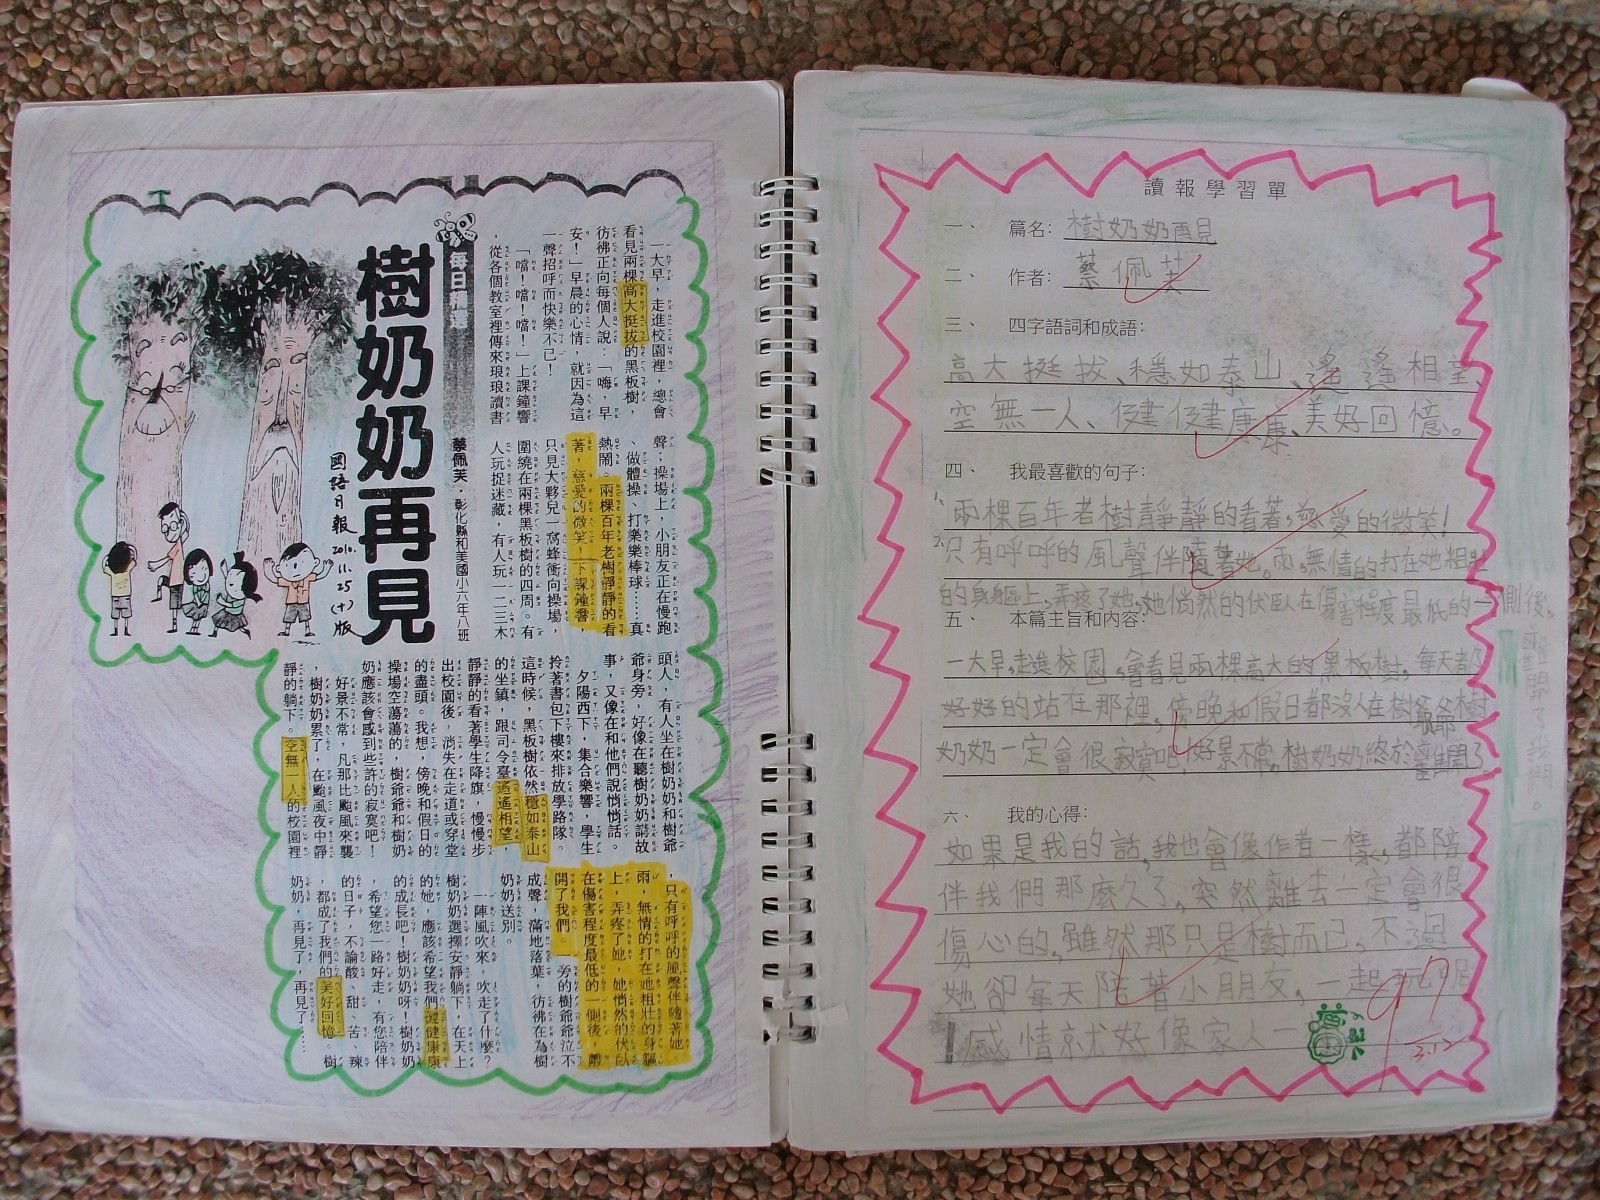 每日精選
樹奶奶再見
蔡佩芙．彰化縣和美國小六年八班
國語日報 2010.11.25(十)版
一大早，走進校園裡，總會
看見兩棵高大挺拔的黑板樹，
彷彿正向每個人說：「嗨，早
安！」早晨的心情，就因為這
一聲招呼而快樂不已！
「噹！噹！噹！」上課鐘響
，從各個教室裡傳來琅琅讀書
聲；操場上，小朋友正在慢跑
、做體操、打樂樂棒球……真
熱鬧。兩棵百年老樹靜靜的看
著，慈愛的微笑！下課鐘響，
只見大夥兒一窩蜂衝向操場，
圍繞在兩棵黑板樹的四周。有
人玩捉迷藏，有人玩一二三木
頭人，有人坐在樹奶奶和樹爺
爺身旁，好像在聽樹奶奶講故
事，又像在和他們說悄悄話。
夕陽西下，集合樂響，學生
拎著書包下樓來排放學路隊。
這時候，黑板樹依然穩如泰山
的坐鎮，跟司令臺遙遙相望，
靜靜的看著學生降旗，慢慢步
出校園後，消失在走道或穿堂
的盡頭。我想，傍晚和假日的
操場空蕩蕩的，樹爺爺和樹奶
奶應該會感到些許的寂寞吧！
好景不常，凡那比颱風來襲
，樹奶奶累了，在颱風夜中靜
靜的躺下。空無一人的校園裡
，只有呼呼的風聲伴隨著她。
雨，無情的打在她粗壯的身軀
上，弄疼了她，她悄然的伏臥
在傷害程度最低的一側後，離
開了我們。一旁的樹爺爺泣不
成聲，滿地落葉，彷彿在為樹
奶奶送別。
一陣風吹來，吹走了什麼？
樹奶奶選擇安靜躺下，在天上
的她，應該希望我們健健康康
的成長吧！樹奶奶呀！樹奶奶
，希望您一路好走，有您陪伴
的日子，不論酸、甜、苦、辣
，都成了我們的美好回憶。樹
奶奶，再見了，再見了……
讀報學習單
一、 篇名：樹奶奶再見
二、 作者：蔡佩芙
三、 四字語詞和成語：
高大挺拔、穩如泰山、遙遙相望、
空無一人、健健康康、美好回憶。
四、 我最喜歡的句子：
1. 兩棵百年老樹靜靜的看著，慈愛的微笑！
2. 只有呼呼的風聲伴隨著她。雨，無情的打在她粗壯
的身軀上，弄疼了她，她悄然的伏臥在傷害程度最低的一側後，
離開了我們。
五、 本篇主旨和內容：
一大早，走進校園，會看見兩棵高大的黑板樹，每天都
好好的站在那裡，傍晚和假日都沒人在樹爺爺樹
奶奶一定會很寂寞吧！好景不常，樹奶奶終於離開了
六、 我的心得：
如果是我的話，我也會像作者一樣，都陪
伴我們那麼久了，突然離去一定會很
傷心的，雖然那只是樹而已，不過
她卻每天陪著小朋友，一起玩呢
感情就好像家人
97
3.12